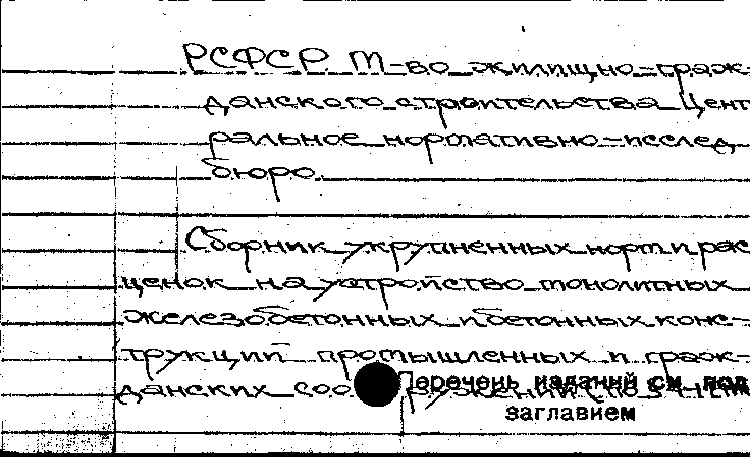 РСФСР М-во жилищно-граж-
данского строительства Цент
ральное нормативно-исслед
бюро.
Сборник укрупненных норм и рас
ценок на устройство монолитных
железобетонных и бетонных конс-
трукций промышленных и граж-
данских соо ружений (по
Перечень изданий см. под
заглавием